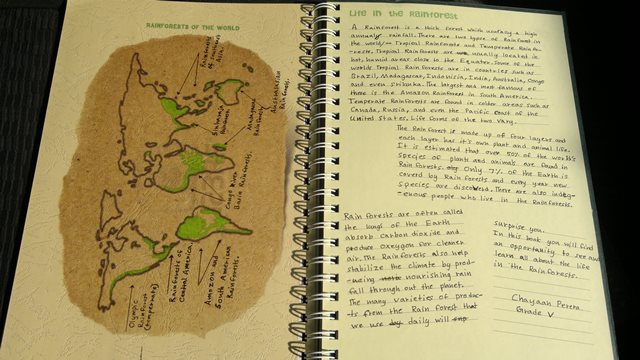 RAINFORESTS OF THE WORLD
Rainforests
of Southeast
Asia
Australasian
Rainforests.
Madagascar
Rainforests
Sinharaja
Rainforest
Congo River
Basin Rainforests
Amazon and
South American
Rainforests.
Rainforests of
Central America
Olympic
Rainforest
(Temperate)
Life in the Rainforest
A Rainforest is a thick forest which
annualy rainfall. There are two types of Rainforest in
the world:- Tropical Rainforests and Temperate Rainfo-
-rests. Tropical Rainforests are usually located in
hot, humid areas close to the Equator. Some of the
worlds Tropical Rain forests are in countries such as
Brazil, Madagascar, Indonisia, India, Australia, Congo
and even Srilanka. The largest and most famous of
these is the Amazon Rainforest in South America.
Temperate Rainforests are found in colder areas such as
Canada, Russia, and even the Pacific coast of the
United States. Life forms of the two vary.
The Rainforest is made up of four layers and
each layer has it's own plant and animal life.
It is estimated that over 50% of the world's
species of plants and animals are found in
Rainforests. Only 7% of the Earth is
covered by Rain forests and every year new
species are discoverd. There are also indig-
-enous people who live in the Rainforests.
Rain forests are often called
the lungs of the Earth
absorb carbon dioxide and
produce Oxeygon for cleaner
air. The Rainforests also help
stabilize the climate by prod-
-using nourishing rain
fall through out the planet.
The many varieties of produc-
-ts from the Rain forest that
we use daily will
surprise you.
In this book you will find
an opportunity to see and
learn all about the life
in the Rainforests.
Chayaan Perera
Grade V